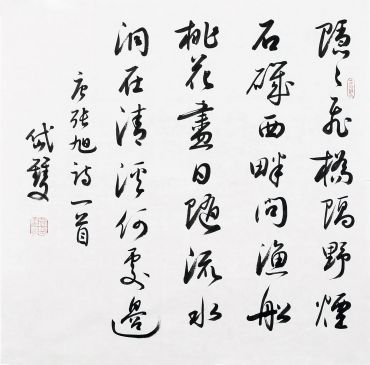 隱々飛橋隔野煙
石磯西畔問漁船
桃花盡日隨流水
洞在清溪何處邊
唐張旭詩一首
岱